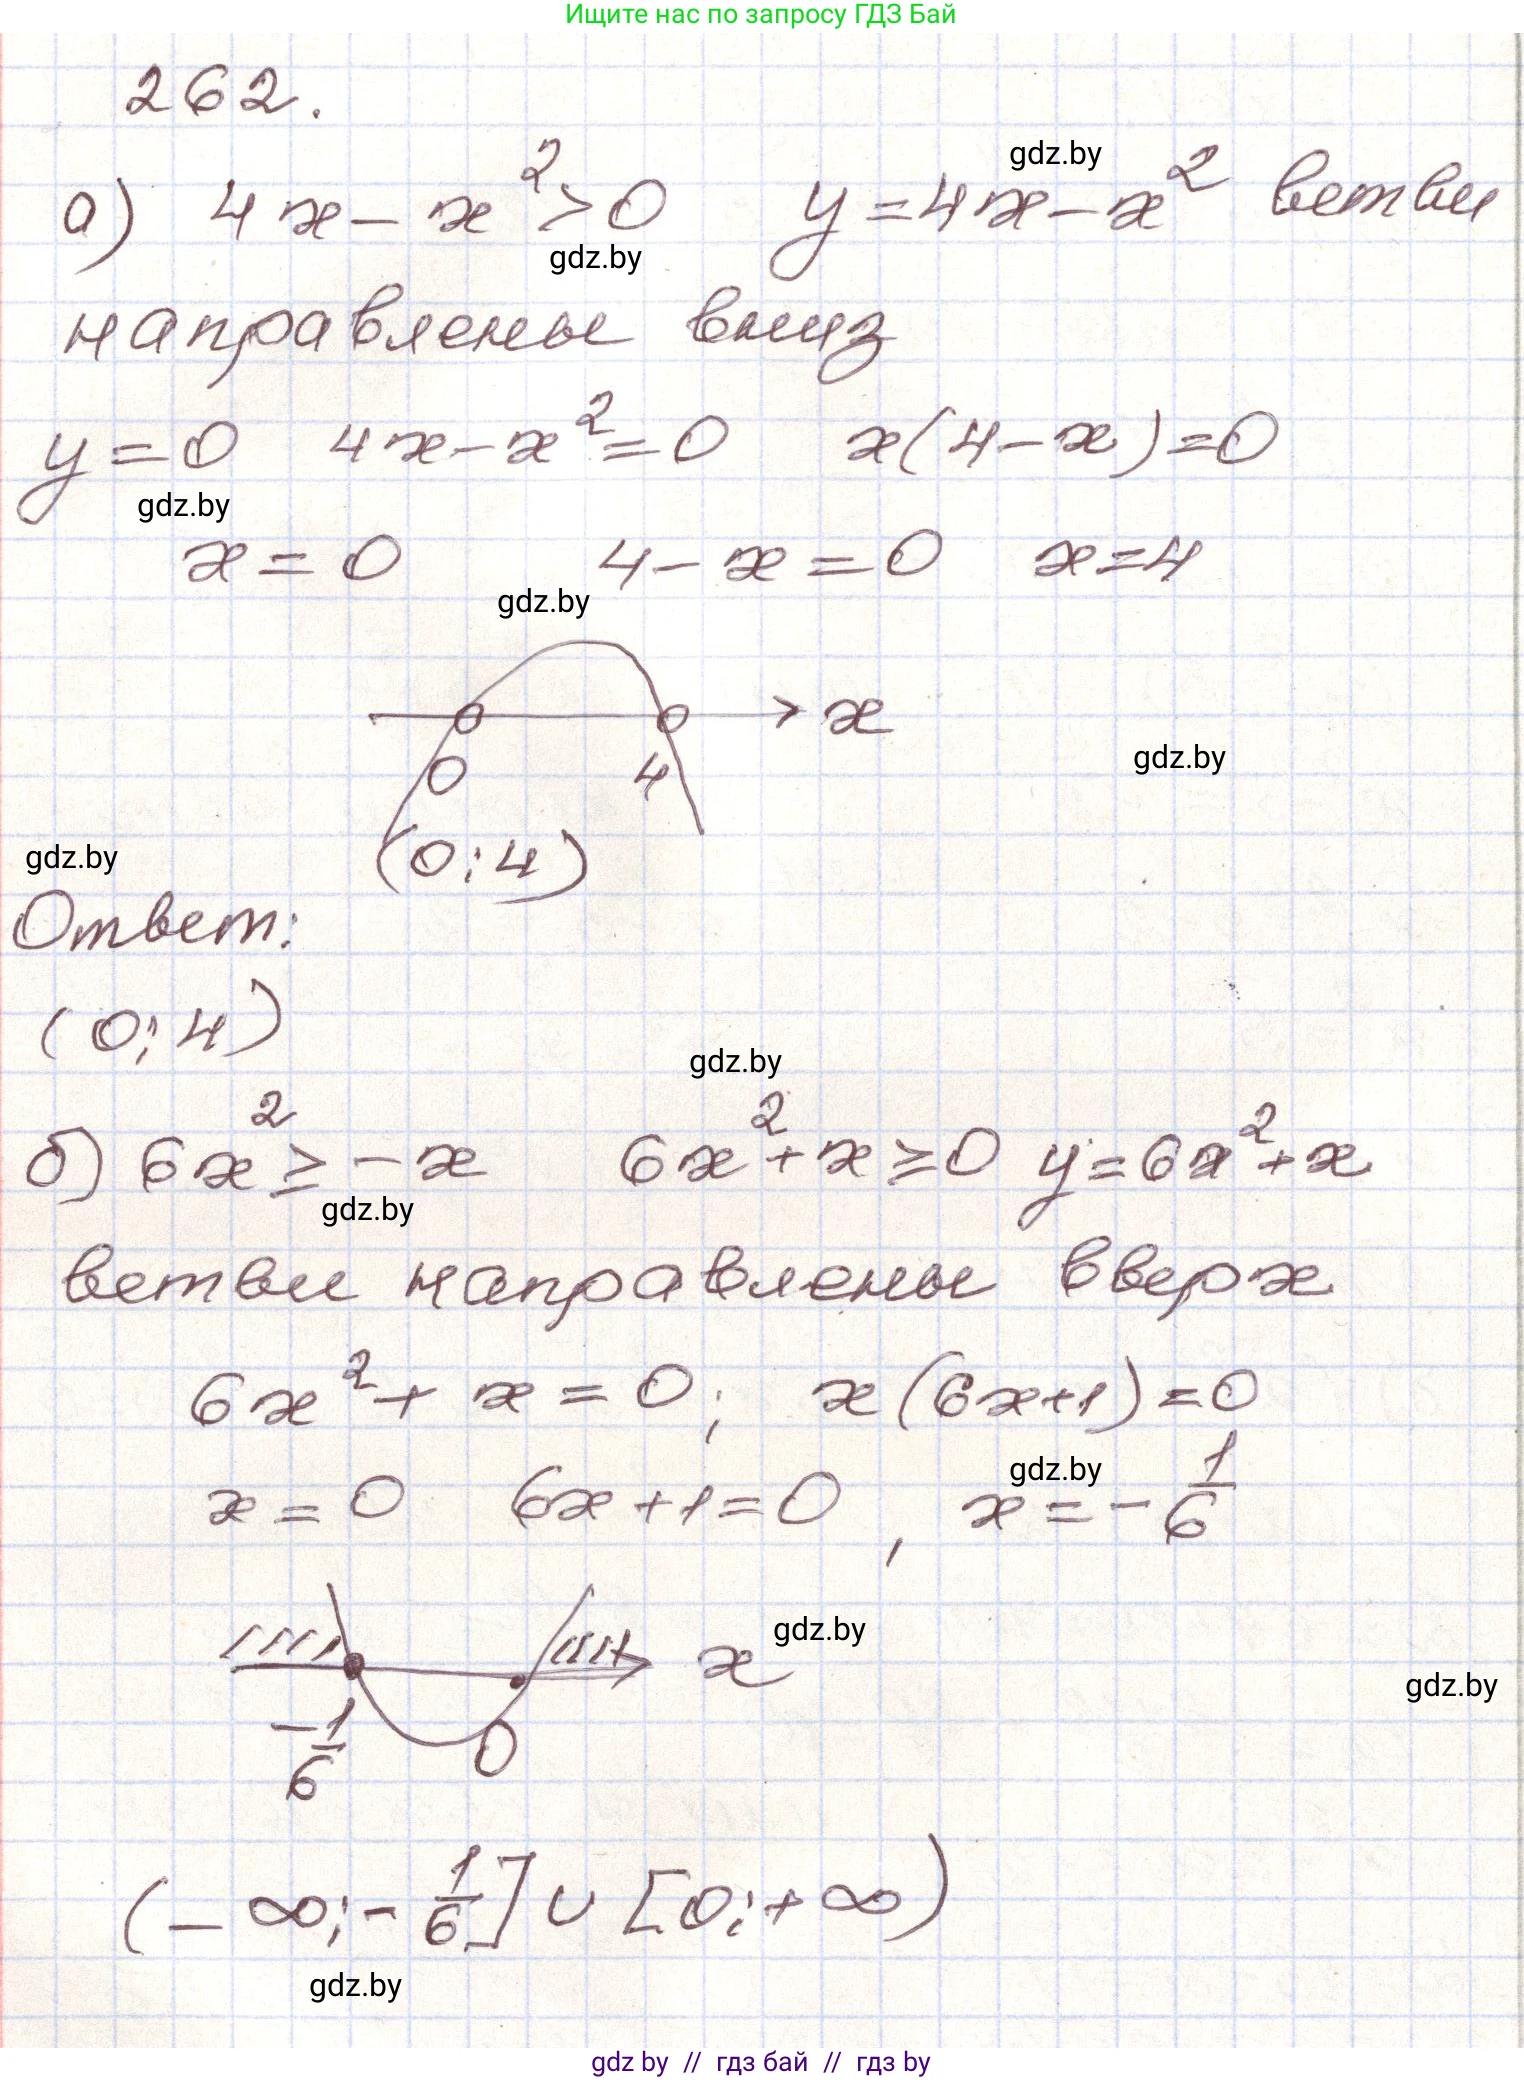 Ищите нас по запросу ГДЗ Бай
262.
gdz.by
а) 4x - x² > 0   y = 4x - x² ветви
gdz.by
направлены вниз
y = 0   4x - x² = 0   x(4 - x) = 0
gdz.by
x = 0   4 - x = 0   x = 4
gdz.by
x
0   4
gdz.by
(0; 4)
gdz.by
Ответ:
(0; 4)
gdz.by
б) 6x² ≥ -x   6x² + x ≥ 0   y = 6x² + x
gdz.by
ветви направлены вверх
6x² + x = 0;   x(6x+1) = 0
gdz.by
x = 0   6x + 1 = 0 ,   x = -1/6
gdz.by
x
gdz.by
-1/6   0
(-∞; -1/6] ∪ [0; +∞)
gdz.by
gdz by // гдз бай // гдз by